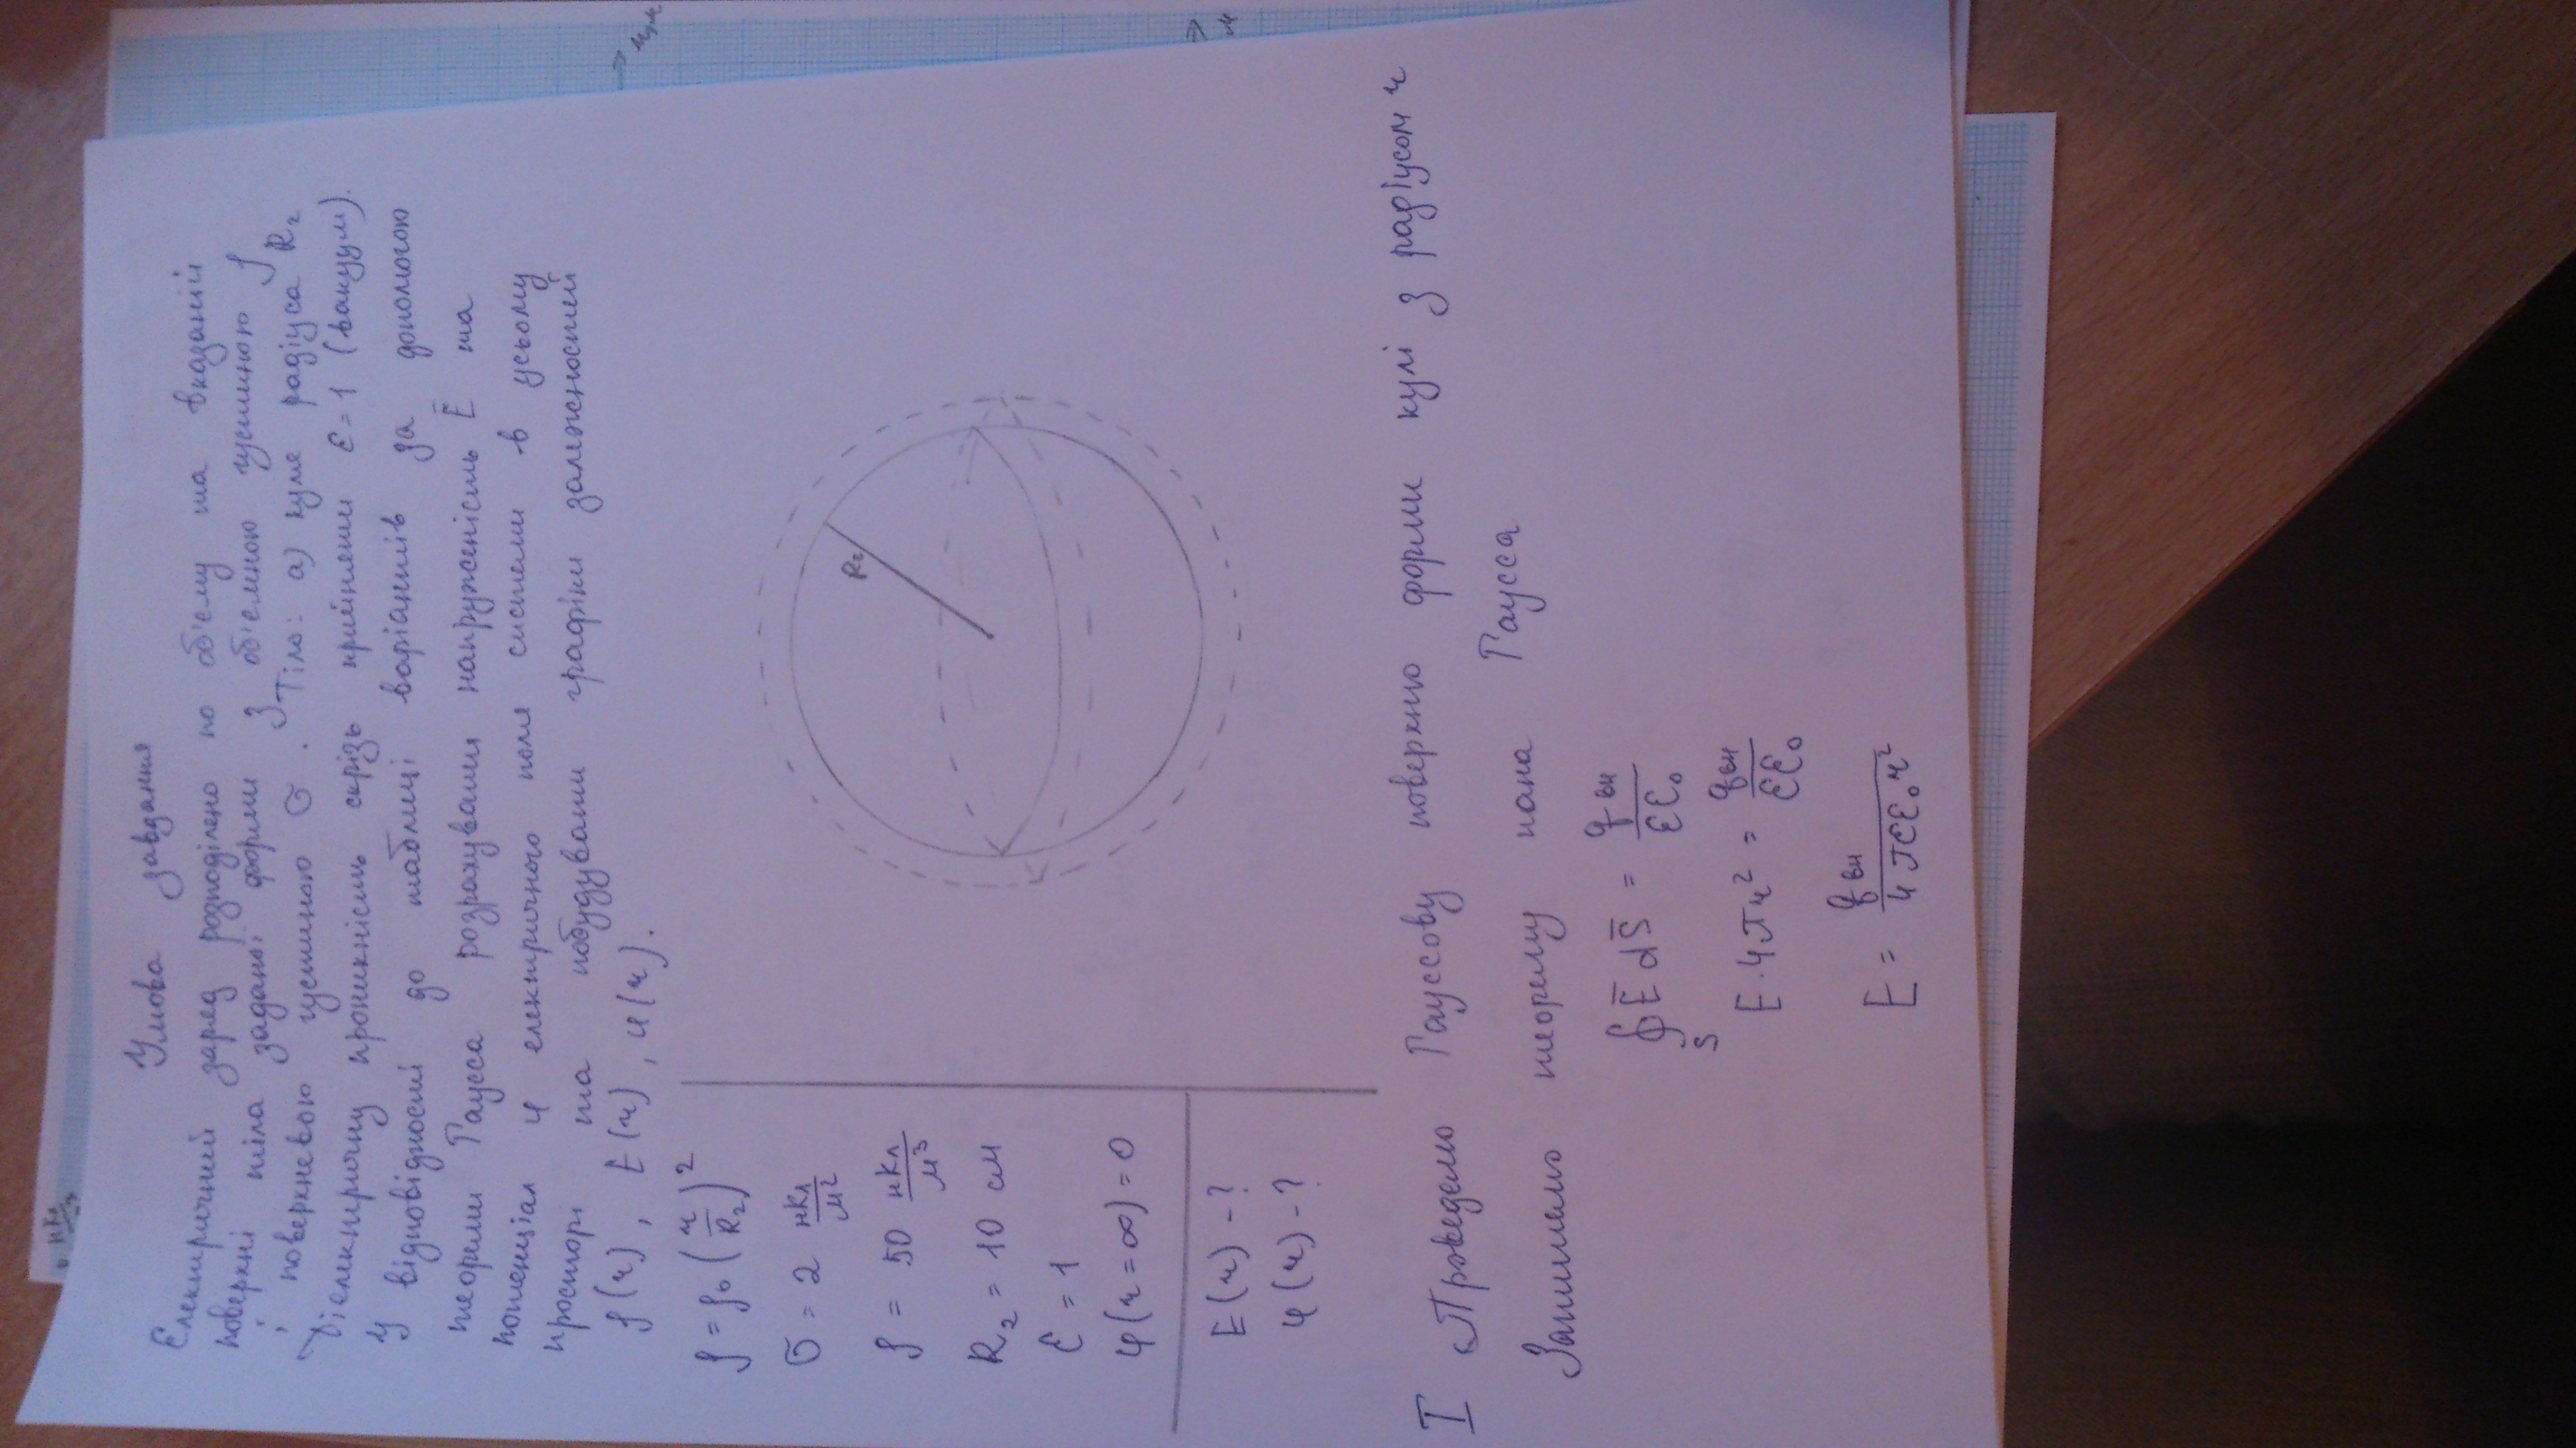 нКл
м³
Умова завдання
Електричний заряд розподілено по об'єму та вказаній
поверхні тіла заданої форми з об'ємною густиною ρ
і поверхневою густиною σ. Тіло: а) куля радіуса R₂
Діелектричну проникність скрізь прийняти ε = 1 (вакуум).
У відповідності до таблиці варіантів за допомогою
теореми Гаусса розрахувати напруженість Ē та
потенціал φ електричного поля системи в усьому
просторі та побудувати графіки залежностей
ρ(r), E(r), φ(r).
ρ = ρ₀ (r/R₂)²
σ = 2 нКл/м²
ρ = 50 нКл/м³
R₂ = 10 см
ε = 1
φ(r = ∞) = 0
E(r) - ?
φ(r) - ?
R₂
I Проведемо Гауссову поверхню форми кулі з радіусом r
Запишемо теорему пана Гаусса
∮ₛ Ē dS̄ = qвн/εε₀
E · 4πr² = qвн/εε₀
E = qвн/4πεε₀r²
м